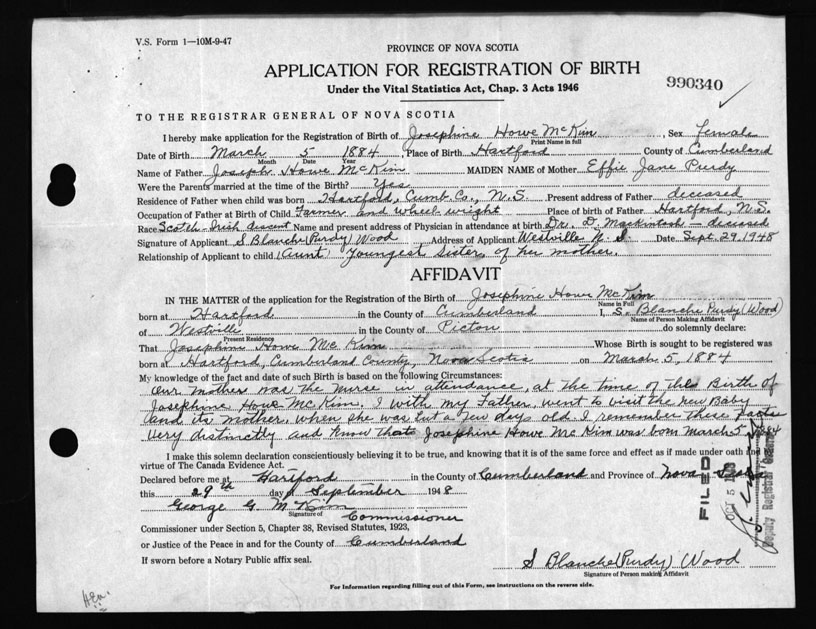 V.S. Form 1—10M-9-47
PROVINCE OF NOVA SCOTIA
APPLICATION FOR REGISTRATION OF BIRTH
Under the Vital Statistics Act, Chap. 3 Acts 1946
990340
TO THE REGISTRAR GENERAL OF NOVA SCOTIA
I hereby make application for the Registration of Birth of Josephine Howe McKim, Sex female
Print Name in full
Date of Birth March 5 1884, Place of Birth Hartford County of Cumberland
Month Date Year
Name of Father Joseph Howe McKim MAIDEN NAME of Mother Effie Jane Purdy
Were the Parents married at the time of the Birth? Yes
Residence of Father when child was born Hartford, Cumb Co., N.S. Present address of Father deceased
Occupation of Father at Birth of Child Farmer and wheel wright Place of birth of Father Hartford, N.S.
Race Scotch-Irish descent Name and present address of Physician in attendance at birth Dr. D. Mackintosh - deceased
Signature of Applicant S Blanche (Purdy) Wood Address of Applicant Westville N. S. Date Sept. 29, 1948
Relationship of Applicant to child (Aunt) Youngest sister of her mother.
AFFIDAVIT
IN THE MATTER of the application for the Registration of the Birth of Josephine Howe McKim
Name in Full
born at Hartford in the County of Cumberland I, S. Blanche Purdy (Wood)
Name of Person Making Affidavit
of Westville in the County of Pictou do solemnly declare:
Present Residence
That Josephine Howe McKim Whose Birth is sought to be registered was
born at Hartford, Cumberland County, Nova Scotia on March 5, 1884
My knowledge of the fact and date of such Birth is based on the following Circumstances:
Our mother was the nurse in attendance, at the time of the Birth of
Josephine Howe McKim. I with my Father, went to visit the new Baby
and its mother, when she was but a few days old I remember these facts
very distinctly and know that Josephine Howe McKim was born March 5 1884
I make this solemn declaration conscientiously believing it to be true, and knowing that it is of the same force and effect as if made under oath and by
virtue of The Canada Evidence Act.
Declared before me at Hartford in the County of Cumberland and Province of Nova Scotia
this 29th day of September 1948
George G. McKim
Signature of Commissioner
Commissioner under Section 5, Chapter 38, Revised Statutes, 1923,
or Justice of the Peace in and for the County of Cumberland
If sworn before a Notary Public affix seal.
S Blanche (Purdy) Wood
Signature of Person making Affidavit
For Information regarding filling out of this Form, see instructions on the reverse side.
FILED
OCT 5 1948
Deputy Registrar General